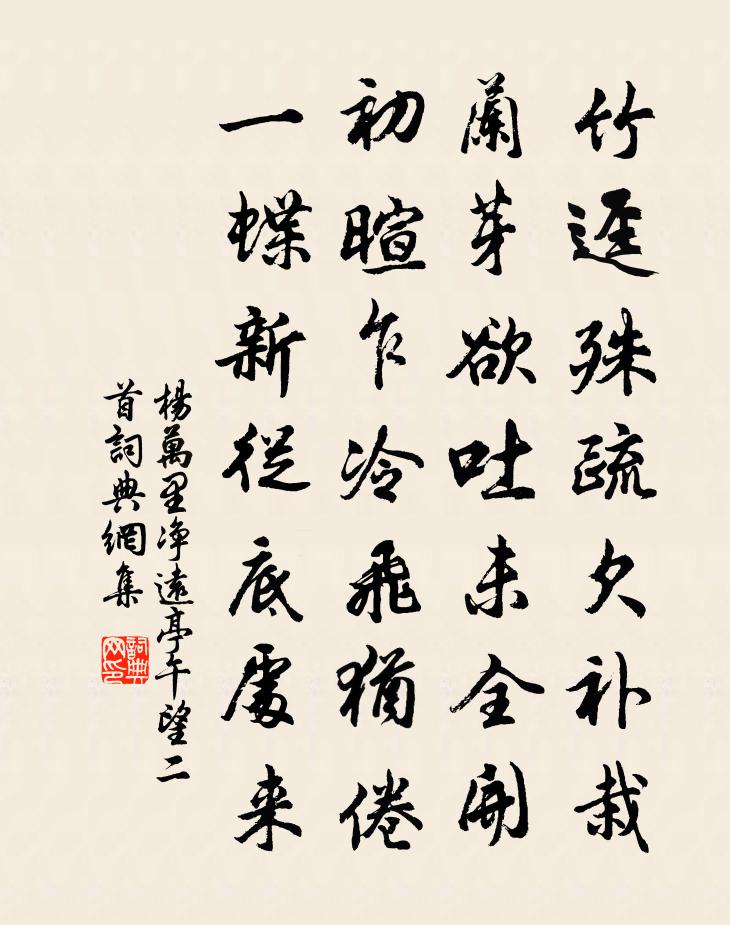 竹逕殊疏欠补栽
蘭芽欲吐未全開
初暄乍冷飛猶倦
一蝶新從底處来
楊萬里净遠亭午望二
首詞典網集
詞典网印